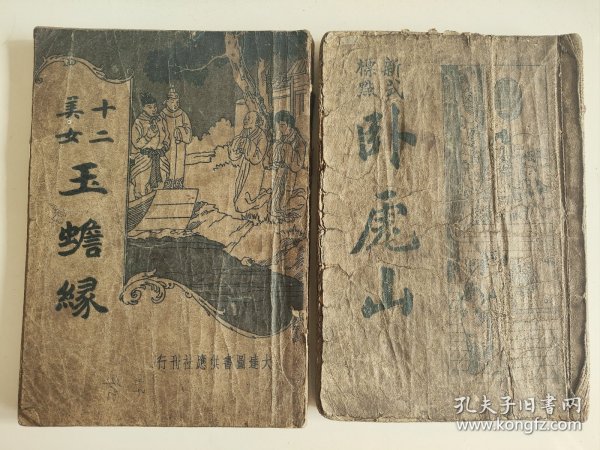 十二
美女
玉蟾緣
大達圖書供應社刊行
新式
標點
卧虎山
孔夫子旧书网
www.kongfz.com